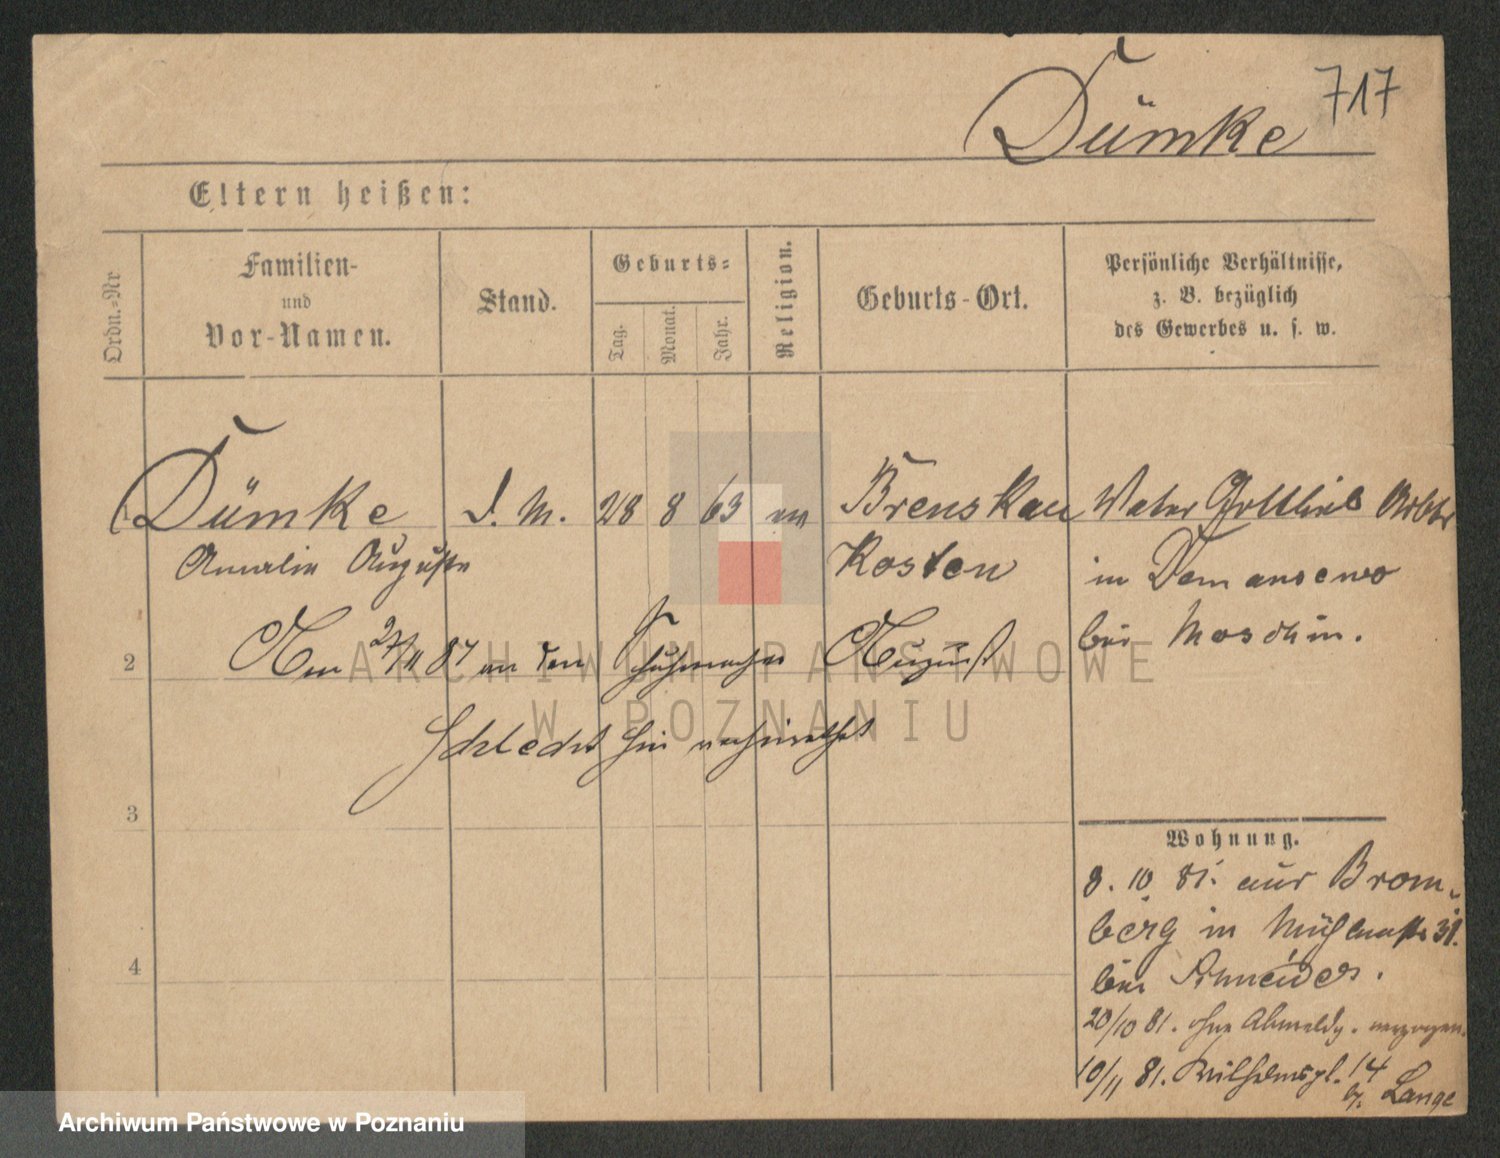 717
Dümke
Eltern heißen:
Ordn.-Nr
Familien-
und
Vor-Namen.
Stand.
Geburts-
Tag.
Monat.
Jahr.
Religion.
Geburts-Ort.
Persönliche Verhältnisse,
z. B. bezüglich
des Gewerbes u. s. w.
1 Dümke d. M. 28 8 63 ev Brenskau Vater Gottlieb Arbtr
Amalie Auguste Kosten in Demansewo
bei Moschin.
2 Am 24/11 87 an den Schuhmacher August
Schlecht hier verheirathet
3
4
Wohnung.
8. 10 81. aus Brom-
berg in Mühlenstr 31.
bei Schneider.
20/10 81. ohne Abmeldg. verzogen.
10/11 81. Wilhelmspl. 14
b. Lange
ARCHIWUM PAŃSTWOWE
W POZNANIU
Archiwum Państwowe w Poznaniu